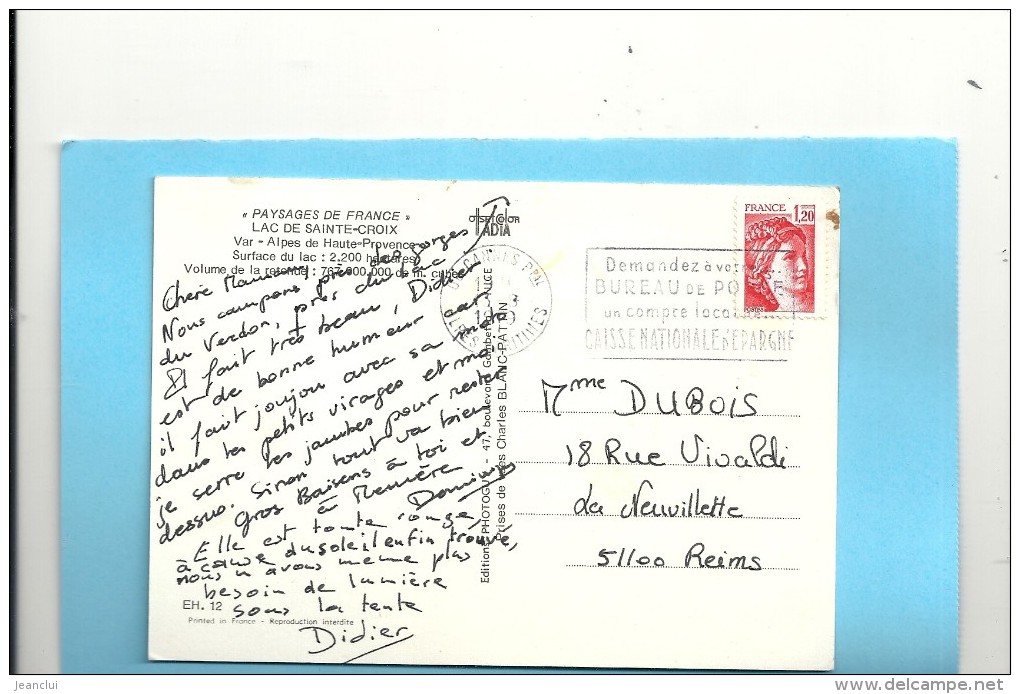 « PAYSAGES DE FRANCE »
LAC DE SAINTE-CROIX
Var - Alpes de Haute-Provence
Surface du lac : 2.200 hectares
Volume de la retenue : 767.000.000 de m. cubes
Chère Maman,
Nous campons près des gorges
du Verdon, près du lac
Il fait très beau, Didier
est de bonne humeur car
il fait joujou avec sa
dans les petits virages et moi
je serre les jambes pour rester
dessus. Sinon tout va bien
Gros Baisers à toi et
à Mémère
Elle est toute rouge,
à cause du soleil enfin trouvé,
nous n'avons même plus
besoin de lumière
sous la tente
Didier
EH. 12
Printed in France - Reproduction interdite
Editions PHOTOGUY - 47, boulevard Gambetta - NICE
Prises de vues Charles BLANC-PATTIN
OFSETCOLOR
IADIA
FRANCE
1,20
POSTES
CANNES PPAL
ALPES MARITIMES
Demandez à vot
BUREAU DE PO
un compte
CAISSE NATIONALE D'EPARGNE
Mme DUBOIS
18 Rue Vivaldi
La Neuvillette
51100 Reims
jeanclui
delcampe.net